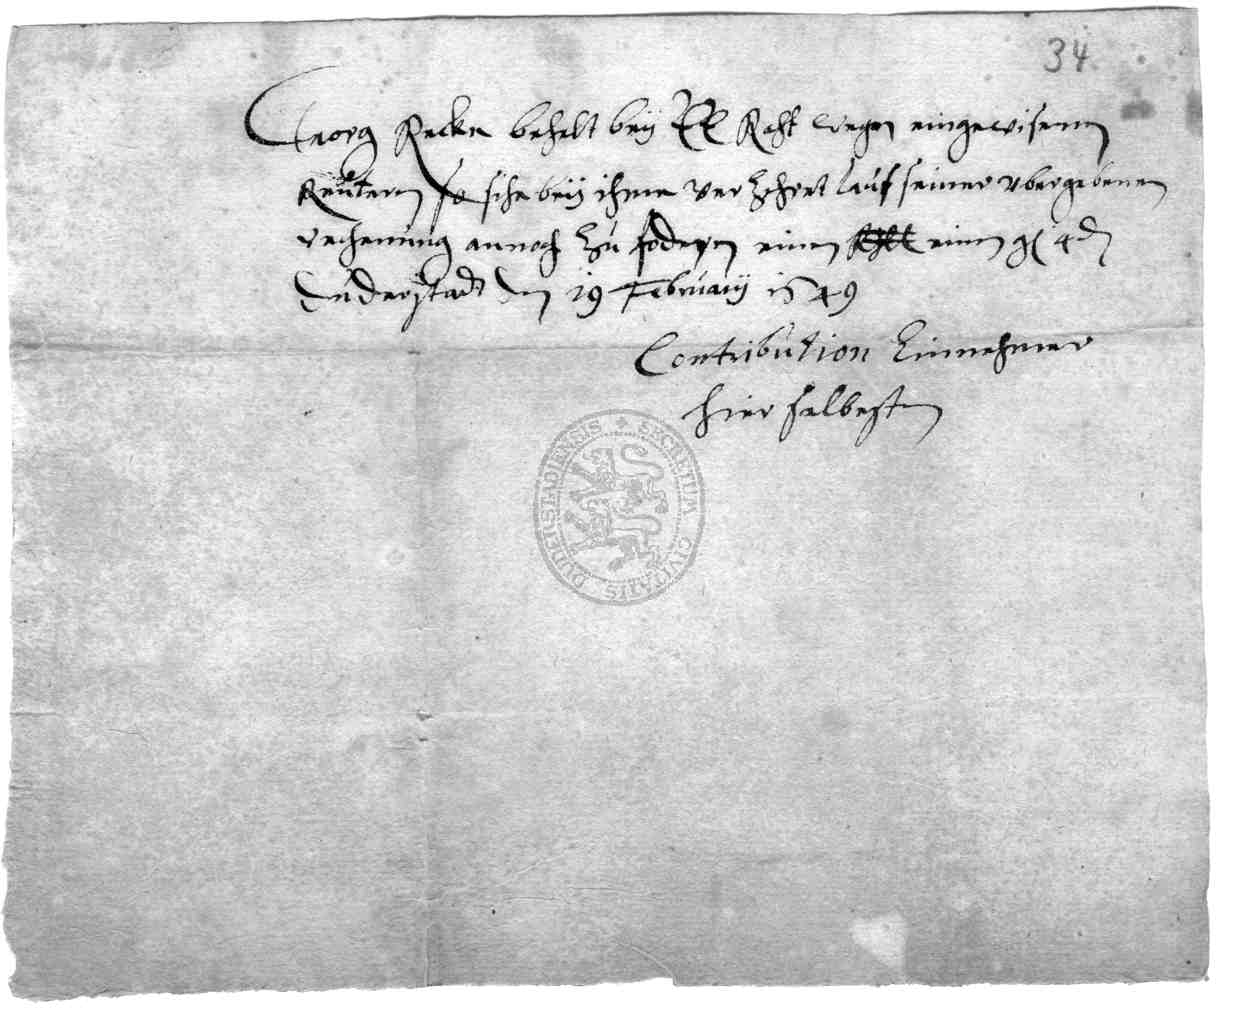 34
Georg Recke behelt beÿ EE Raht wegen eingewisenen
Reütern so sihe beÿ ihme verzehret lauf seiner vbergebenen
rechenung annoch zu fodern einen einen gl 4 d
Düderstadt den 19 Februarÿ 1649
Contribution Einnehmer
hierselbesten
SECRETUM CIVITATIS DUDERSTADIENSIS